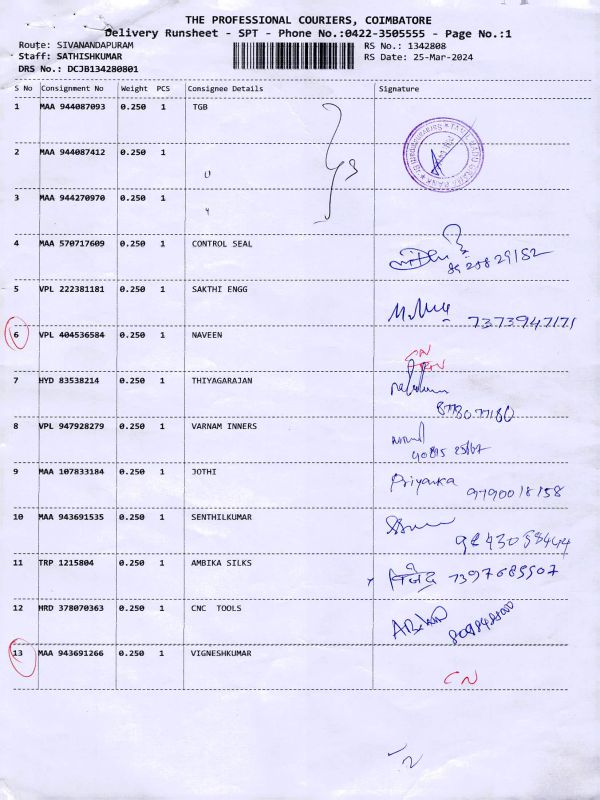 THE PROFESSIONAL COURIERS, COIMBATORE
Delivery Runsheet - SPT - Phone No.:0422-3505555 - Page No.:1
Route: SIVANANDAPURAM RS No.: 1342808
Staff: SATHISHKUMAR RS Date: 25-Mar-2024
DRS No.: DCJB134280801
S No Consignment No Weight PCS Consignee Details Signature
1 MAA 944087093 0.250 1 TGB
2 MAA 944087412 0.250 1
3 MAA 944270970 0.250 1
4 MAA 570717609 0.250 1 CONTROL SEAL
5 VPL 222381181 0.250 1 SAKTHI ENGG
7373947171
6 VPL 404536584 0.250 1 NAVEEN
CN
7 HYD 83538214 0.250 1 THIYAGARAJAN
8 VPL 947928279 0.250 1 VARNAM INNERS
9 MAA 107833184 0.250 1 JOTHI Priyanka 9790018158
10 MAA 943691535 0.250 1 SENTHILKUMAR
11 TRP 1215804 0.250 1 AMBIKA SILKS
12 HRD 378070363 0.250 1 CNC TOOLS
13 MAA 943691266 0.250 1 VIGNESHKUMAR
CN